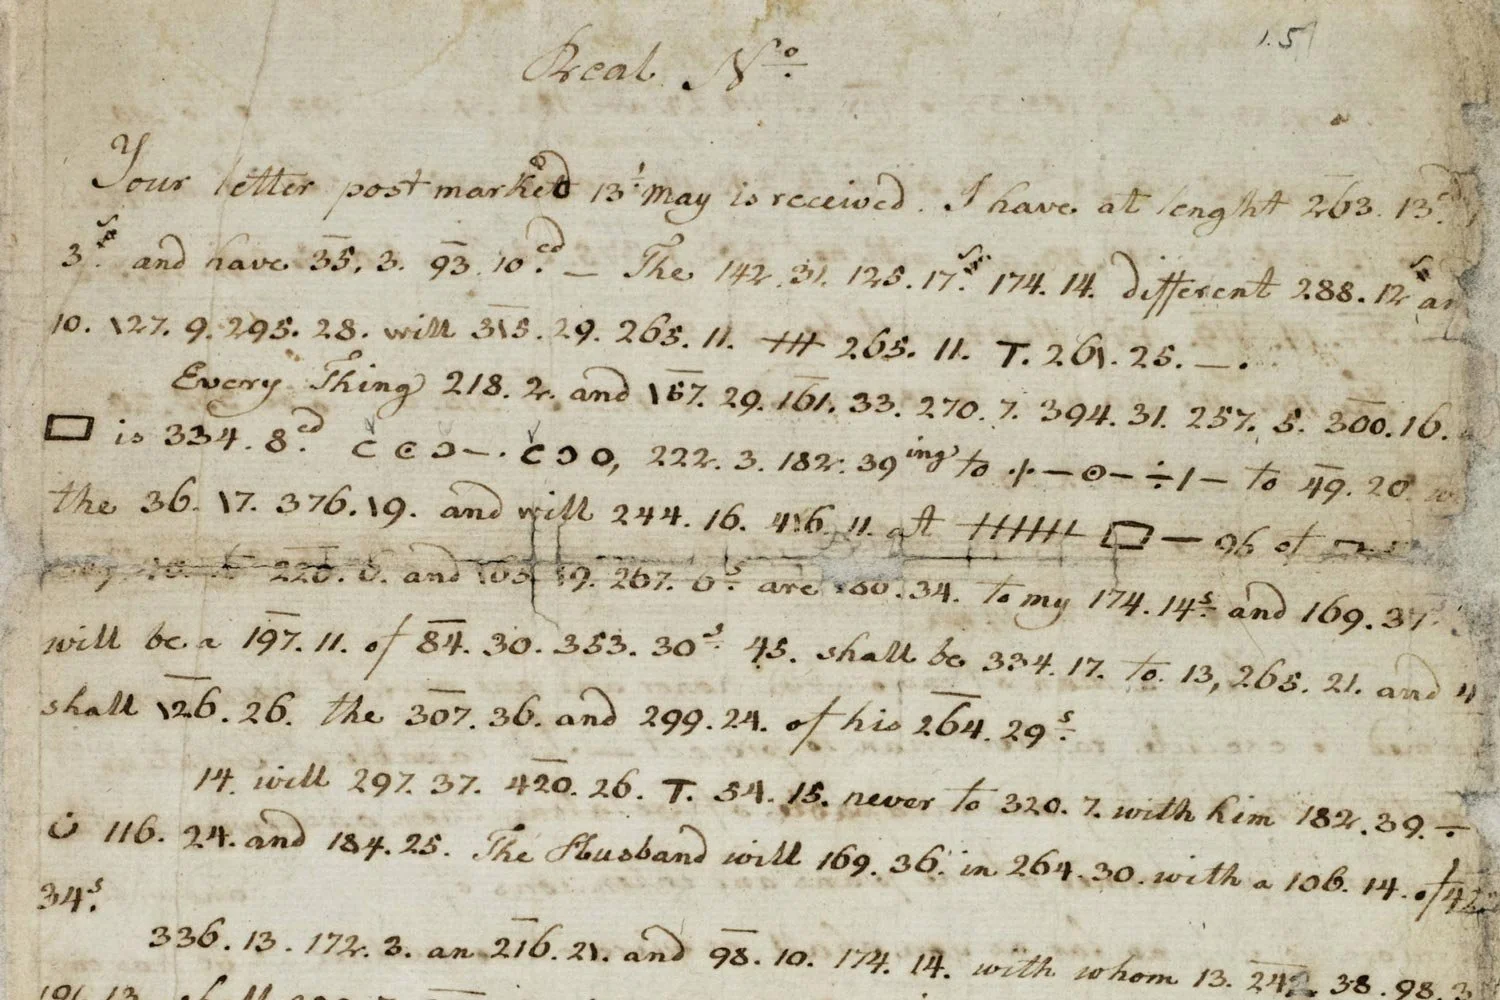 1.5
Real Nº.
Your letter postmarked 13t May is received. I have at lenght 263. 13.ed
3.s and have 35. 3. 93. 10.ed — The 142. 31. 125. 17.s 174. 14. different 288. 12s an
10. 127. 9. 295. 28. will 315. 29. 265. 11. 265. 11. T. 261. 25. —.
Every Thing 218. 2. and 157. 29. 161. 33. 270. 7. 394. 31. 257. 5. 300. 16.
▭ is 334. 8.ed C C Ɔ — . C Ɔ O, 222. 3. 182. 39 ing to ⊙ — ÷ 1 — to 49. 20
the 36. 17. 376. 19. and will 244. 16. 416. 11. at ▭ — 96 of
226. 6. and 19. 267. 6.s are 34. to my 174. 14.s and 169. 37
will be a 197. 11. of 84. 30. 353. 30.s 45. shall be 334. 17. to 13, 265. 21. and
shall 126. 26. the 307. 36. and 299. 24. of his 264. 29.s
14. will 297. 37. 420. 26. T. 54. 15. never to 320. 7. with him 182. 39. ÷
116. 24. and 184. 25. The Husband will 169. 36. in 264. 30. with a 106. 14. of
34.s
336. 13. 172. 3. an 216. 21. and 98. 10. 174. 14. with whom 13. 38. 98. 3
191. 13.